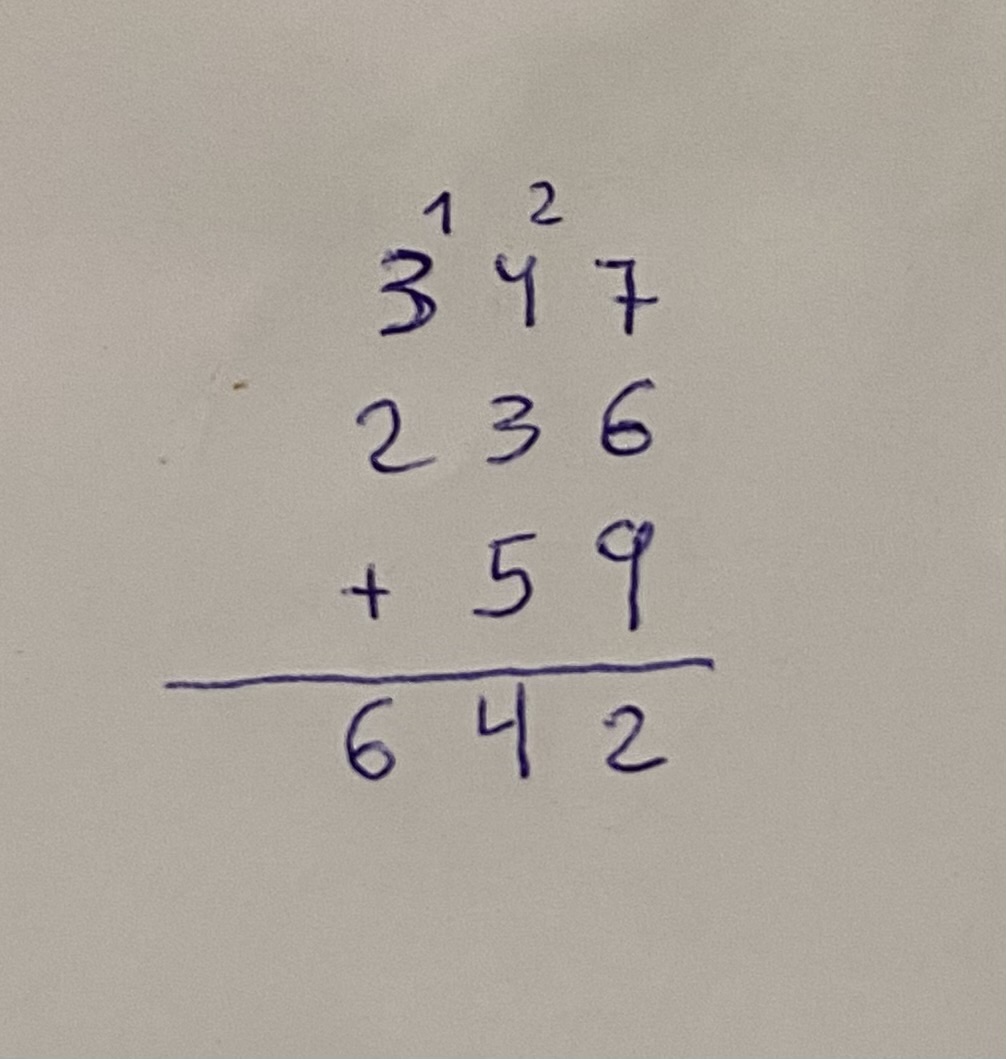 1 2
3 4 7
2 3 6
+ 5 9
6 4 2